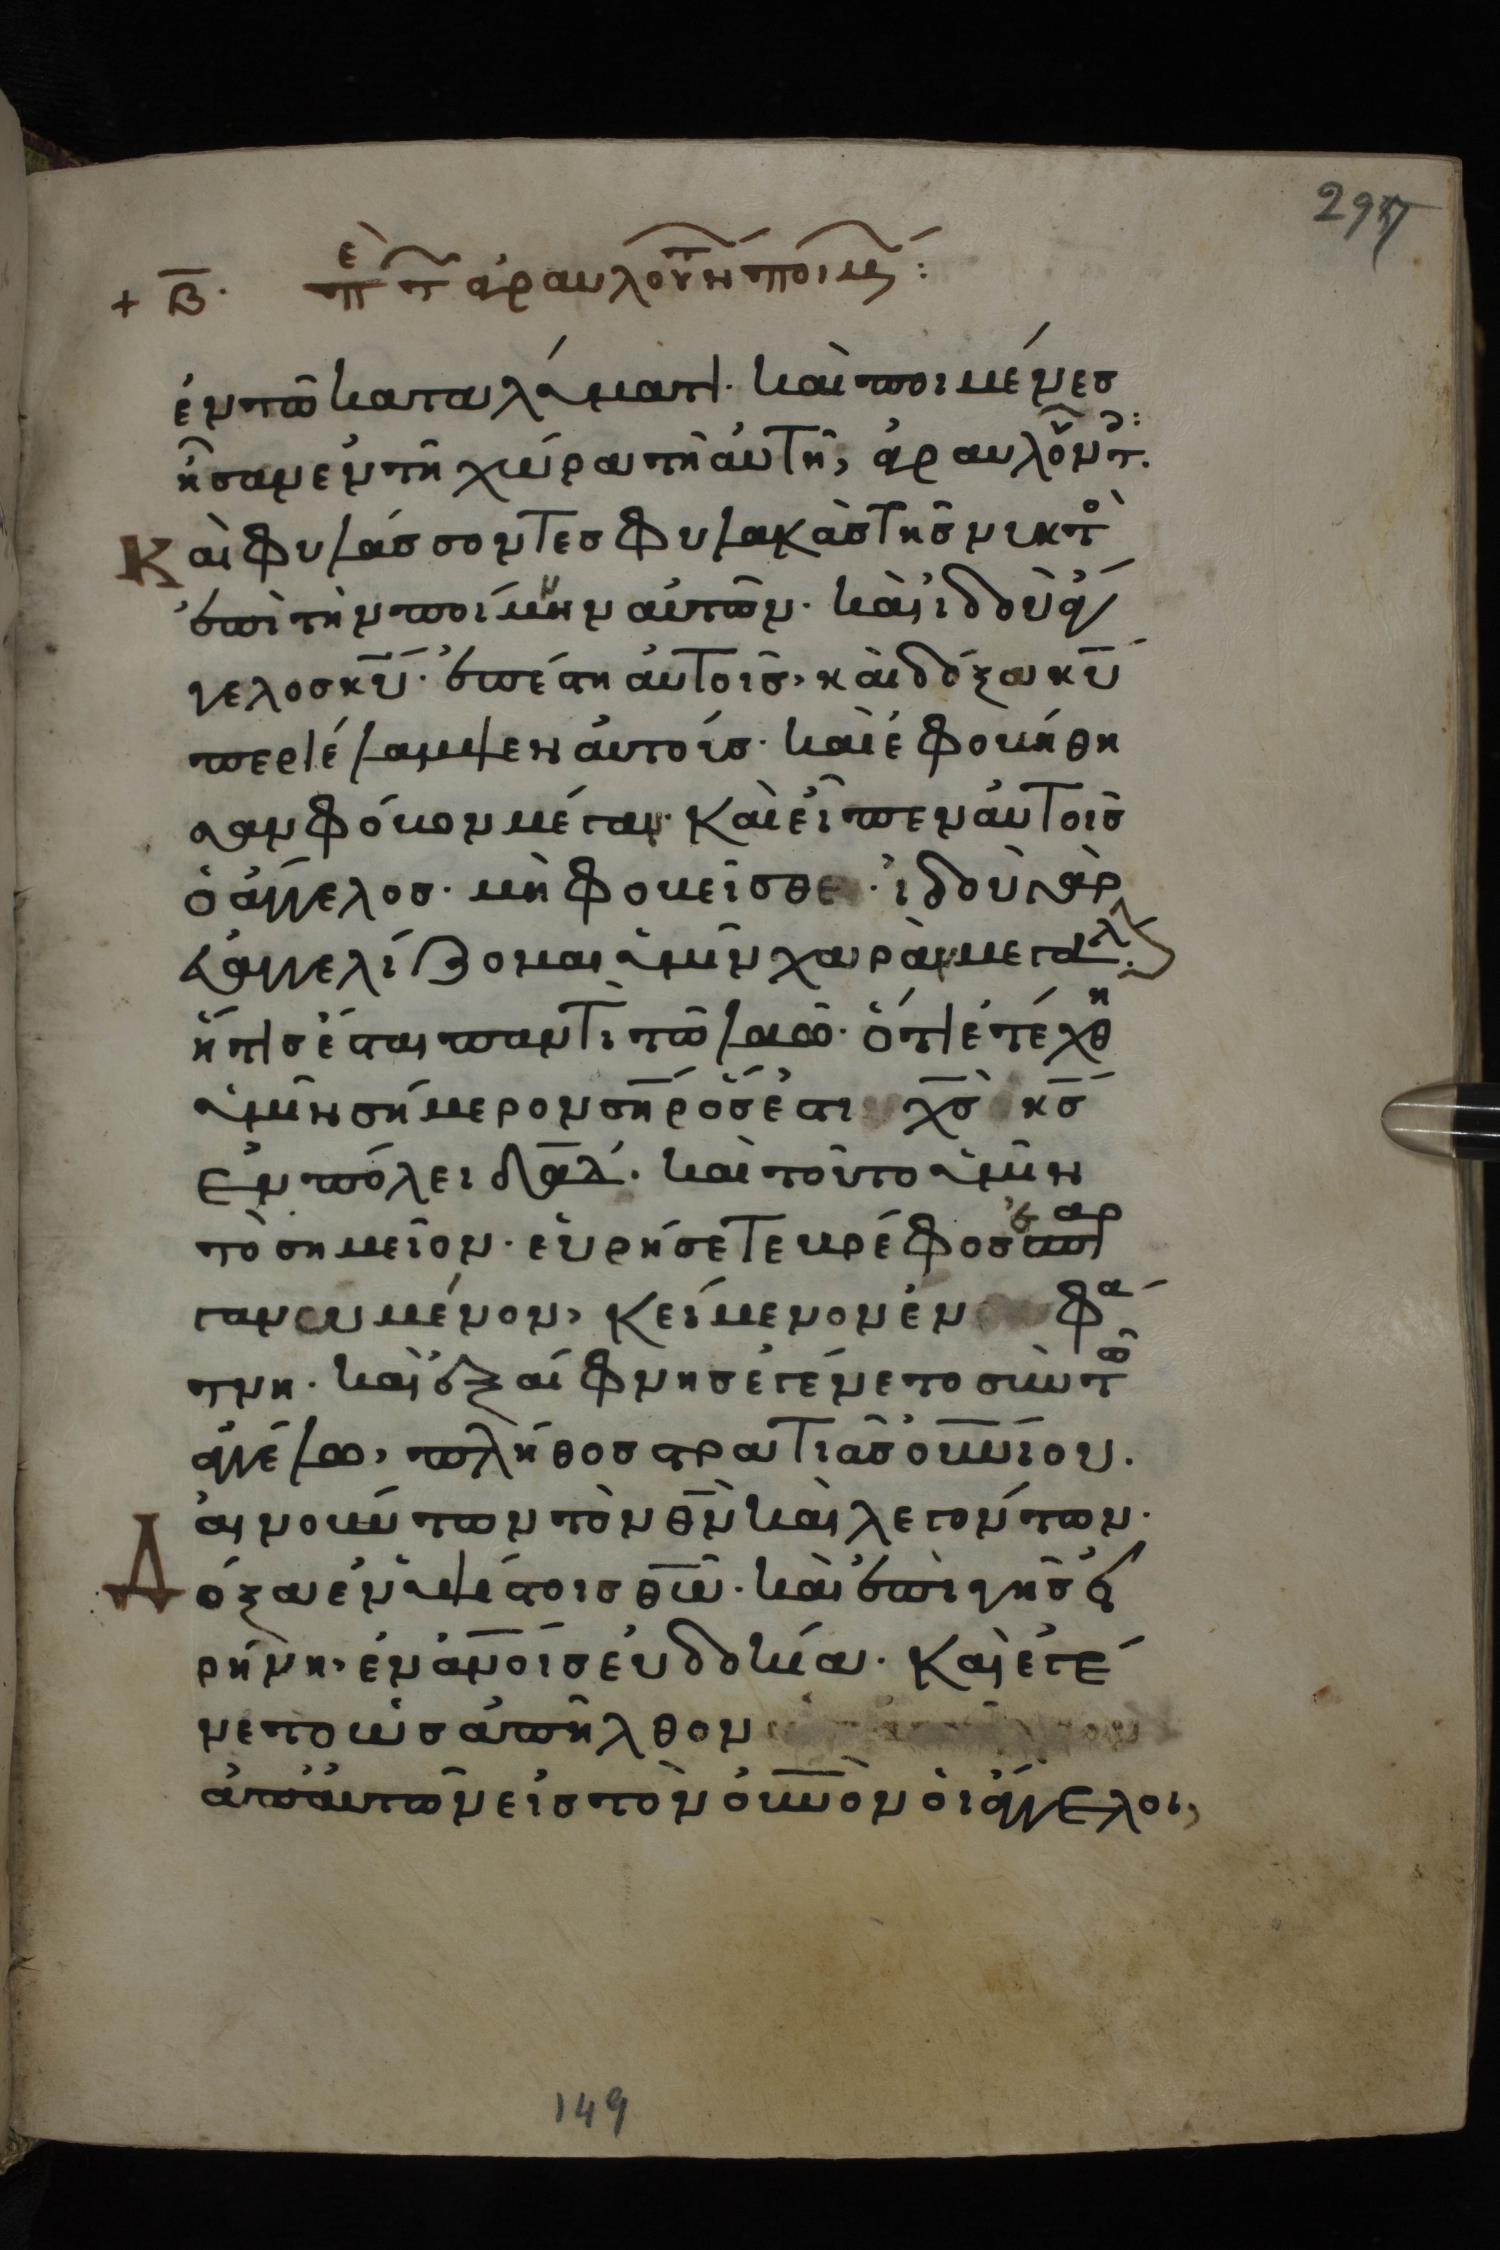 297
+ β̅. πε τ ἀγραυλούντ ποιμέ:
ἐν τῶ καταλύματι· καὶ ποιμένες
ἦσαν ἐν τῆ χώρα τῆ αὐτῆ, ἀγραυλοῦντ:
Καὶ φυλάσσοντες φυλακὰς τῆς νυκτὸ
ἐπὶ τὴν ποίμνην αὐτῶν· καὶ ἰδοὺ ἄγ
γελος κ̅υ̅· ἐπέστη αὐτοῖς, καὶ δόξα κ̅υ̅
περιέλαμψεν αὐτούς· καὶ ἐφοβήθη
σαν φόβον μέγαν· καὶ εἶπεν αὐτοῖς
ὁ ἄγγελος· μὴ φοβεῖσθε· ἰδοὺ γὰρ
εὐαγγελίζομαι ὑμῖν χαρὰν μεγάλ
ἥτις ἔσται παντὶ τῶ λαῶ· ὅτι ἐτέχθη
ὑμῖν σήμερον σ̅η̅ρ̅ ὅς ἐστι χ̅ς̅ κ̅ς̅
ἐν πόλει δ̅α̅δ̅· καὶ τοῦτο ὑμῖν
τὸ σημεῖον· εὑρήσετε βρέφος ἐσπαρ
γανωμένον, κείμενον ἐν φά
τνη· καὶ ἐξαίφνης ἐγένετο σὺν τῶ
ἀγγέλω, πλῆθος στρατιᾶς οὐνίου.
αἰνούντων τὸν θ̅ν̅ καὶ λεγόντων·
Δόξα ἐν ὑψίστοις θ̅ω̅· καὶ ἐπὶ γῆς εἰ
ρήνη, ἐν ἀνοις εὐδοκία· καὶ ἐγέ
νετο ὡς ἀπῆλθον
ἀπ' αὐτῶν εἰς τὸν οὐνὸν οἱ ἄγγελοι,
149